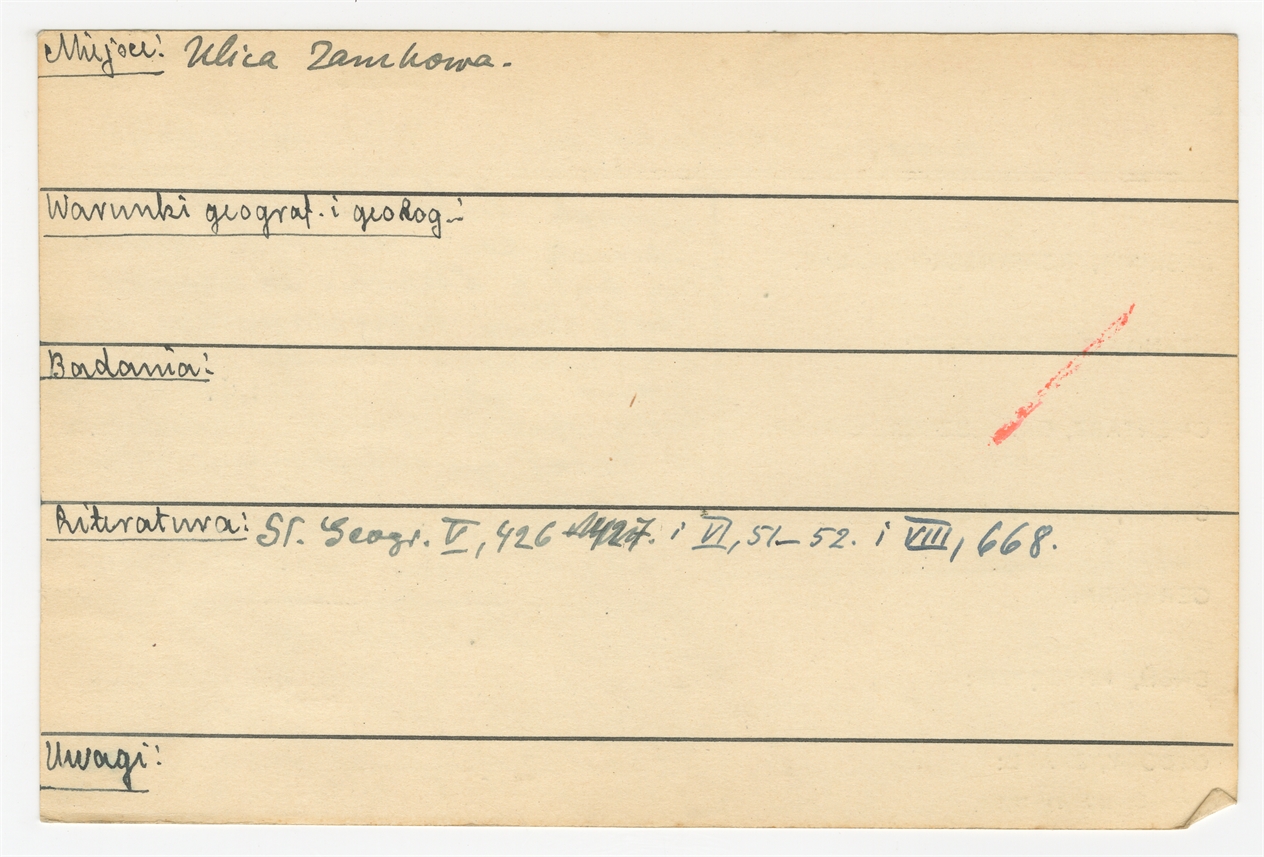 Miejsce: Ulica Zamkowa.
Warunki geograf. i geolog.:
Badania:
Literatura: Sł. Geogr. V, 426 i VI, 51-52. i VIII, 668.
Uwagi: